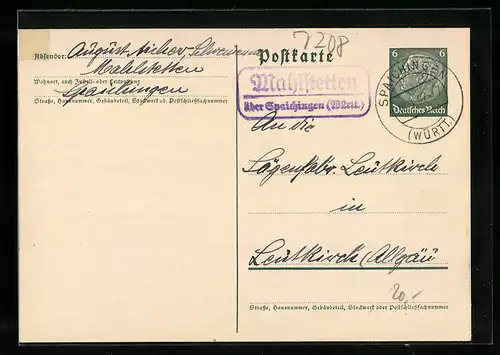 7208
Absender: August
Mahlstetten
Wohnort, auch Zustell- oder Leitpostamt
Spaichingen
Straße, Hausnummer, Gebäudeteil, Stockwerk od. Postschließfachnummer
Postkarte
6 6
Deutsches Reich
SPAICHINGEN
(WÜRTT.)
Mahlstetten
über Spaichingen (Württ.)
An die
Sägenfabr. Leutkirch
in
Leutkirch (Allgäu
20,-
Straße, Hausnummer, Gebäudeteil, Stockwerk oder Postschließfachnummer